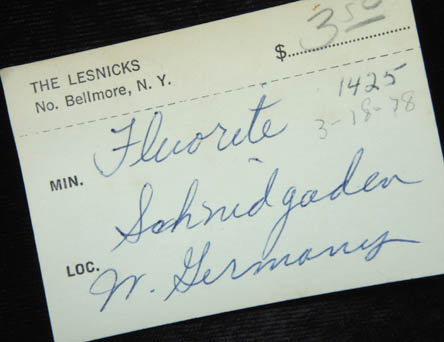 THE LESNICKS
No. Bellmore, N. Y.
$ 3.50
1425
3-18-78
MIN. Fluorite
Schnidgaden
LOC. W. Germany